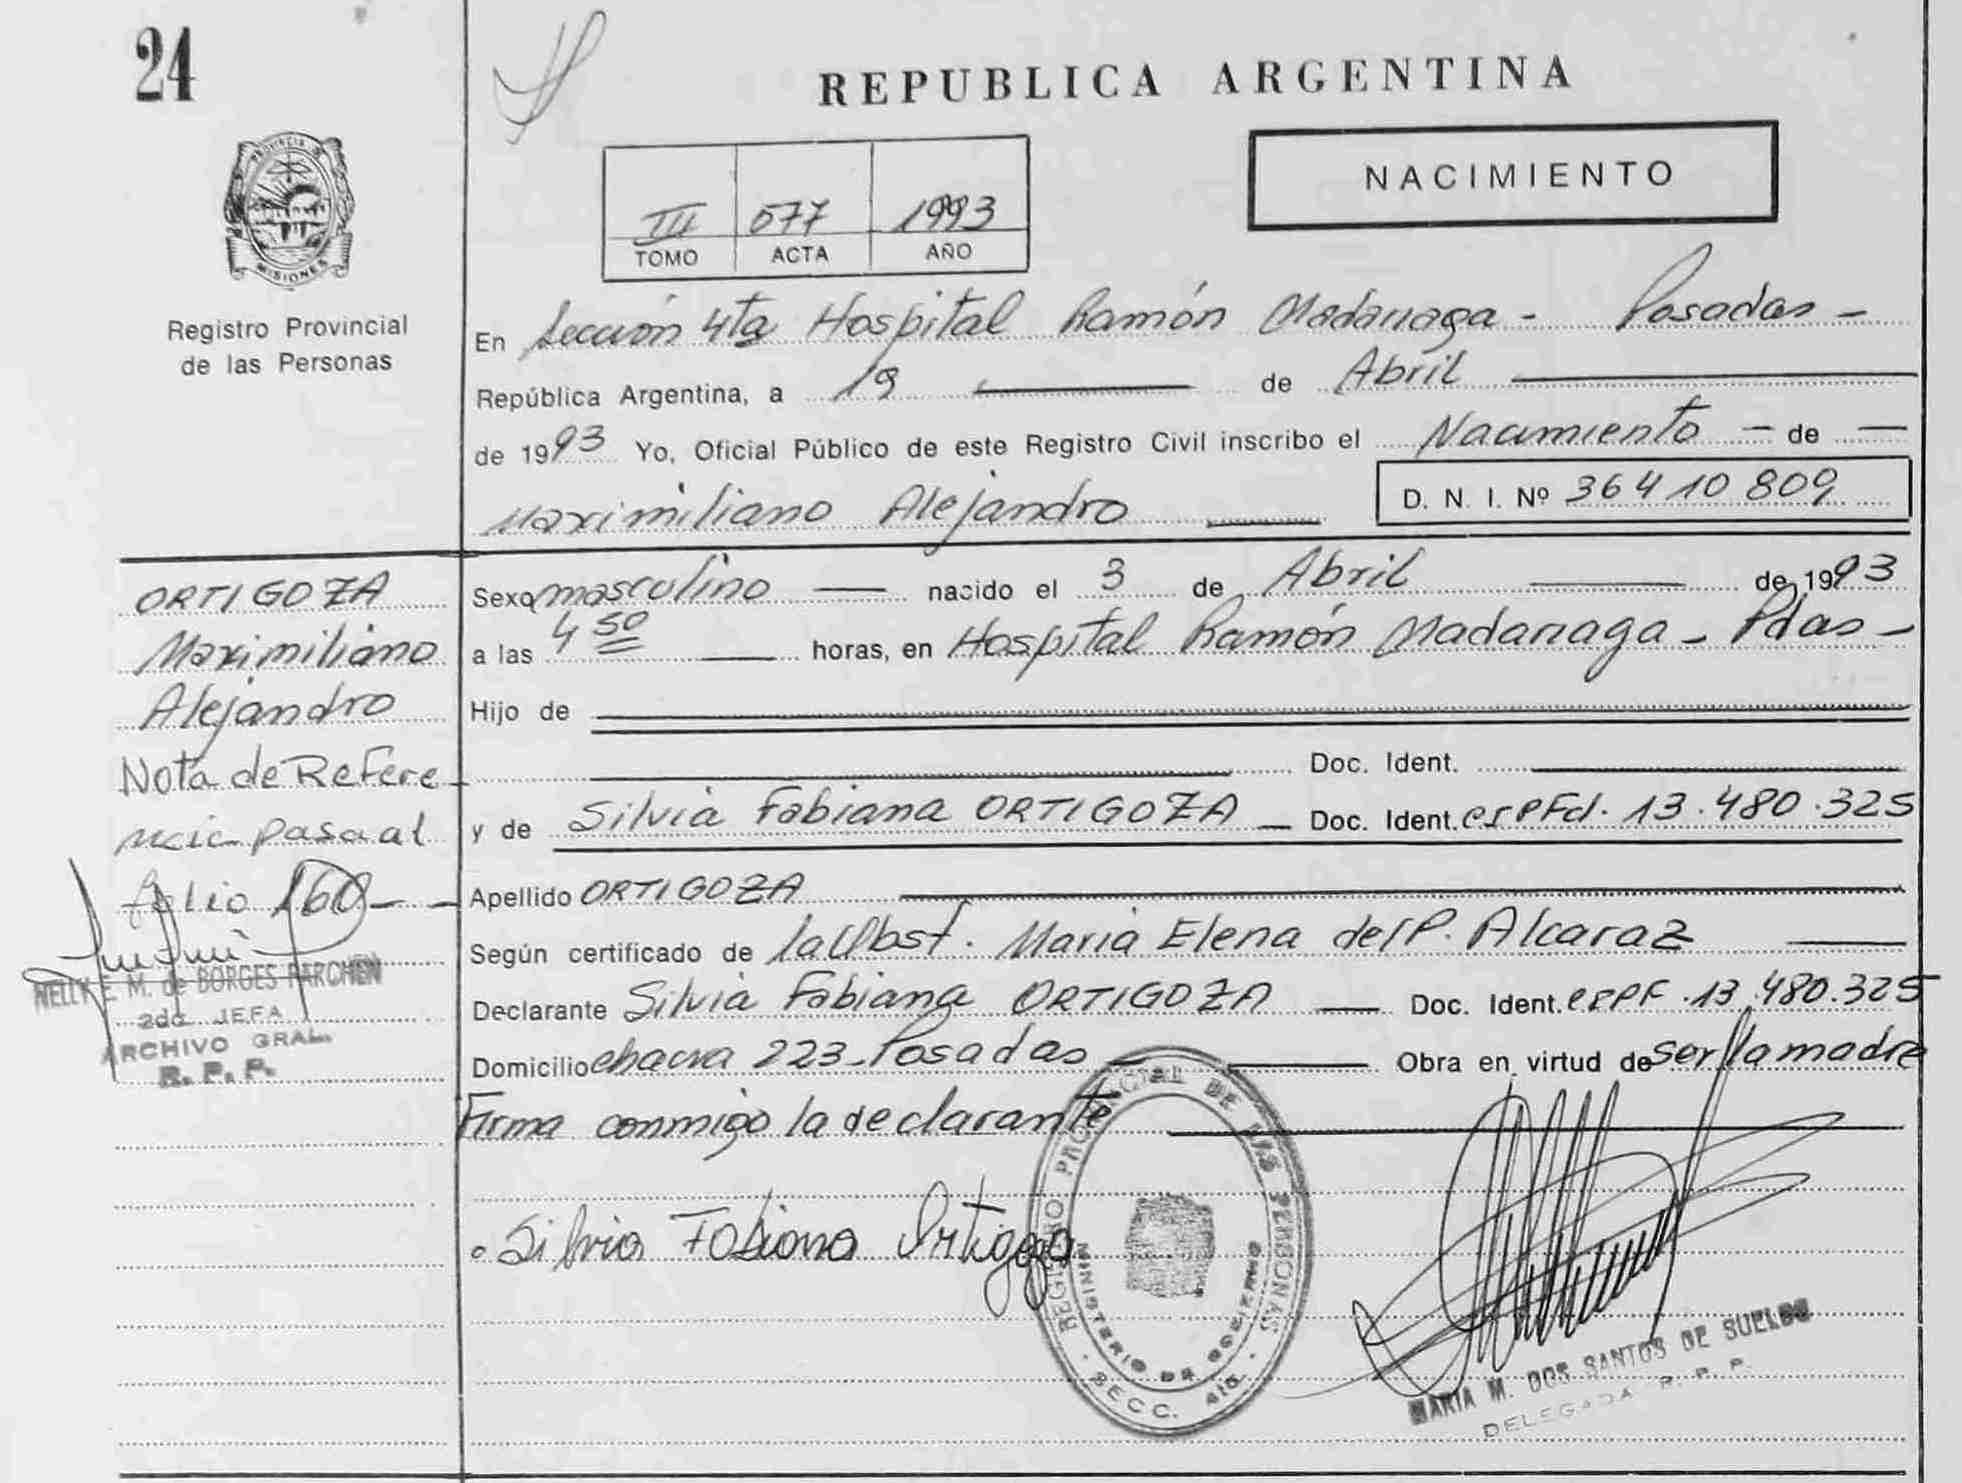 24
REPUBLICA ARGENTINA
NACIMIENTO
PROVINCIA DE
MISIONES
Registro Provincial
de las Personas
III 077 1993
TOMO ACTA AÑO
En Sección 4ta Hospital Ramón Madariaga - Posadas -
República Argentina, a 19 de Abril
de 1993 Yo, Oficial Público de este Registro Civil inscribo el Nacimiento - de -
Maximiliano Alejandro
D. N. I. Nº 36410809
ORTIGOZA
Maximiliano
Alejandro
Nota de Refere
ncia pasa al
folio 160 - -
NELLY E. M. de BORGES PARCHEN
2da. JEFA
ARCHIVO GRAL.
R. P. P.
Sexo masculino nacido el 3 de Abril de 1993
a las 4 50 horas, en Hospital Ramón Madariaga - Pdas -
Hijo de
Doc. Ident.
y de Silvia Fabiana ORTIGOZA - Doc. Ident. 13.480.325
Apellido ORTIGOZA
Según certificado de la Obst. María Elena del P. Alcaraz
Declarante Silvia Fabiana ORTIGOZA - Doc. Ident. 13.480.325
Domicilio chacra 223 - Posadas - Obra en virtud de ser la madre
Firma conmigo la declarante
Silvia Fabiana Ortigoza
REGISTRO PROVINCIAL DE LAS PERSONAS
MINISTERIO DE GOBIERNO
SECC. 4ta.
MARIA M. DOS SANTOS DE SUELDO
DELEGADA R. P. P.